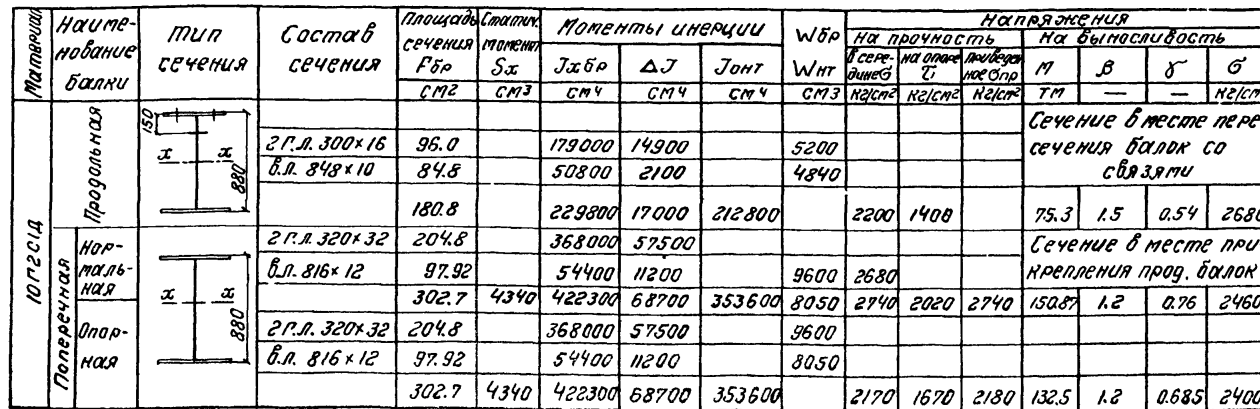 Материал | Наименование балки | Тип сечения | Состав сечения | Площадь сечения Fбр | Статич. момент Sx | Моменты инерции | Wбр Wнт | Напряжения
На прочность | На выносливость
Jxбр | ΔJ | Jонт | в середине σ | на опоре τ | приведенное σпр | M | β | γ | σ
см2 | см3 | см4 | см4 | см4 | см3 | кг/см2 | кг/см2 | кг/см2 | тм | — | — | кг/см
10Г2С1Д | Продольная | 150 | x | x | 880
Сечение в месте пере
2 г.л. 300×16 | 96.0 | 179000 | 14900 | 5200 | сечения балок со
в.л. 848×10 | 84.8 | 50800 | 2100 | 4840 | связями
180.8 | 229800 | 17000 | 212800 | 2200 | 1400 | 75.3 | 1.5 | 0.54 | 2680
Поперечная | Нормальная | x | x | 880
2 г.л. 320×32 | 204.8 | 368000 | 57500 | Сечение в месте при
в.л. 816×12 | 97.92 | 54400 | 11200 | 9600 | 2680 | крепления прод. балок
302.7 | 4340 | 422300 | 68700 | 353600 | 8050 | 2740 | 2020 | 2740 | 150.87 | 1.2 | 0.76 | 2460
Опорная | 2 г.л. 320×32 | 204.8 | 368000 | 57500 | 9600
в.л. 816×12 | 97.92 | 54400 | 11200 | 8050
302.7 | 4340 | 422300 | 68700 | 353600 | 2170 | 1670 | 2180 | 132.5 | 1.2 | 0.685 | 2400